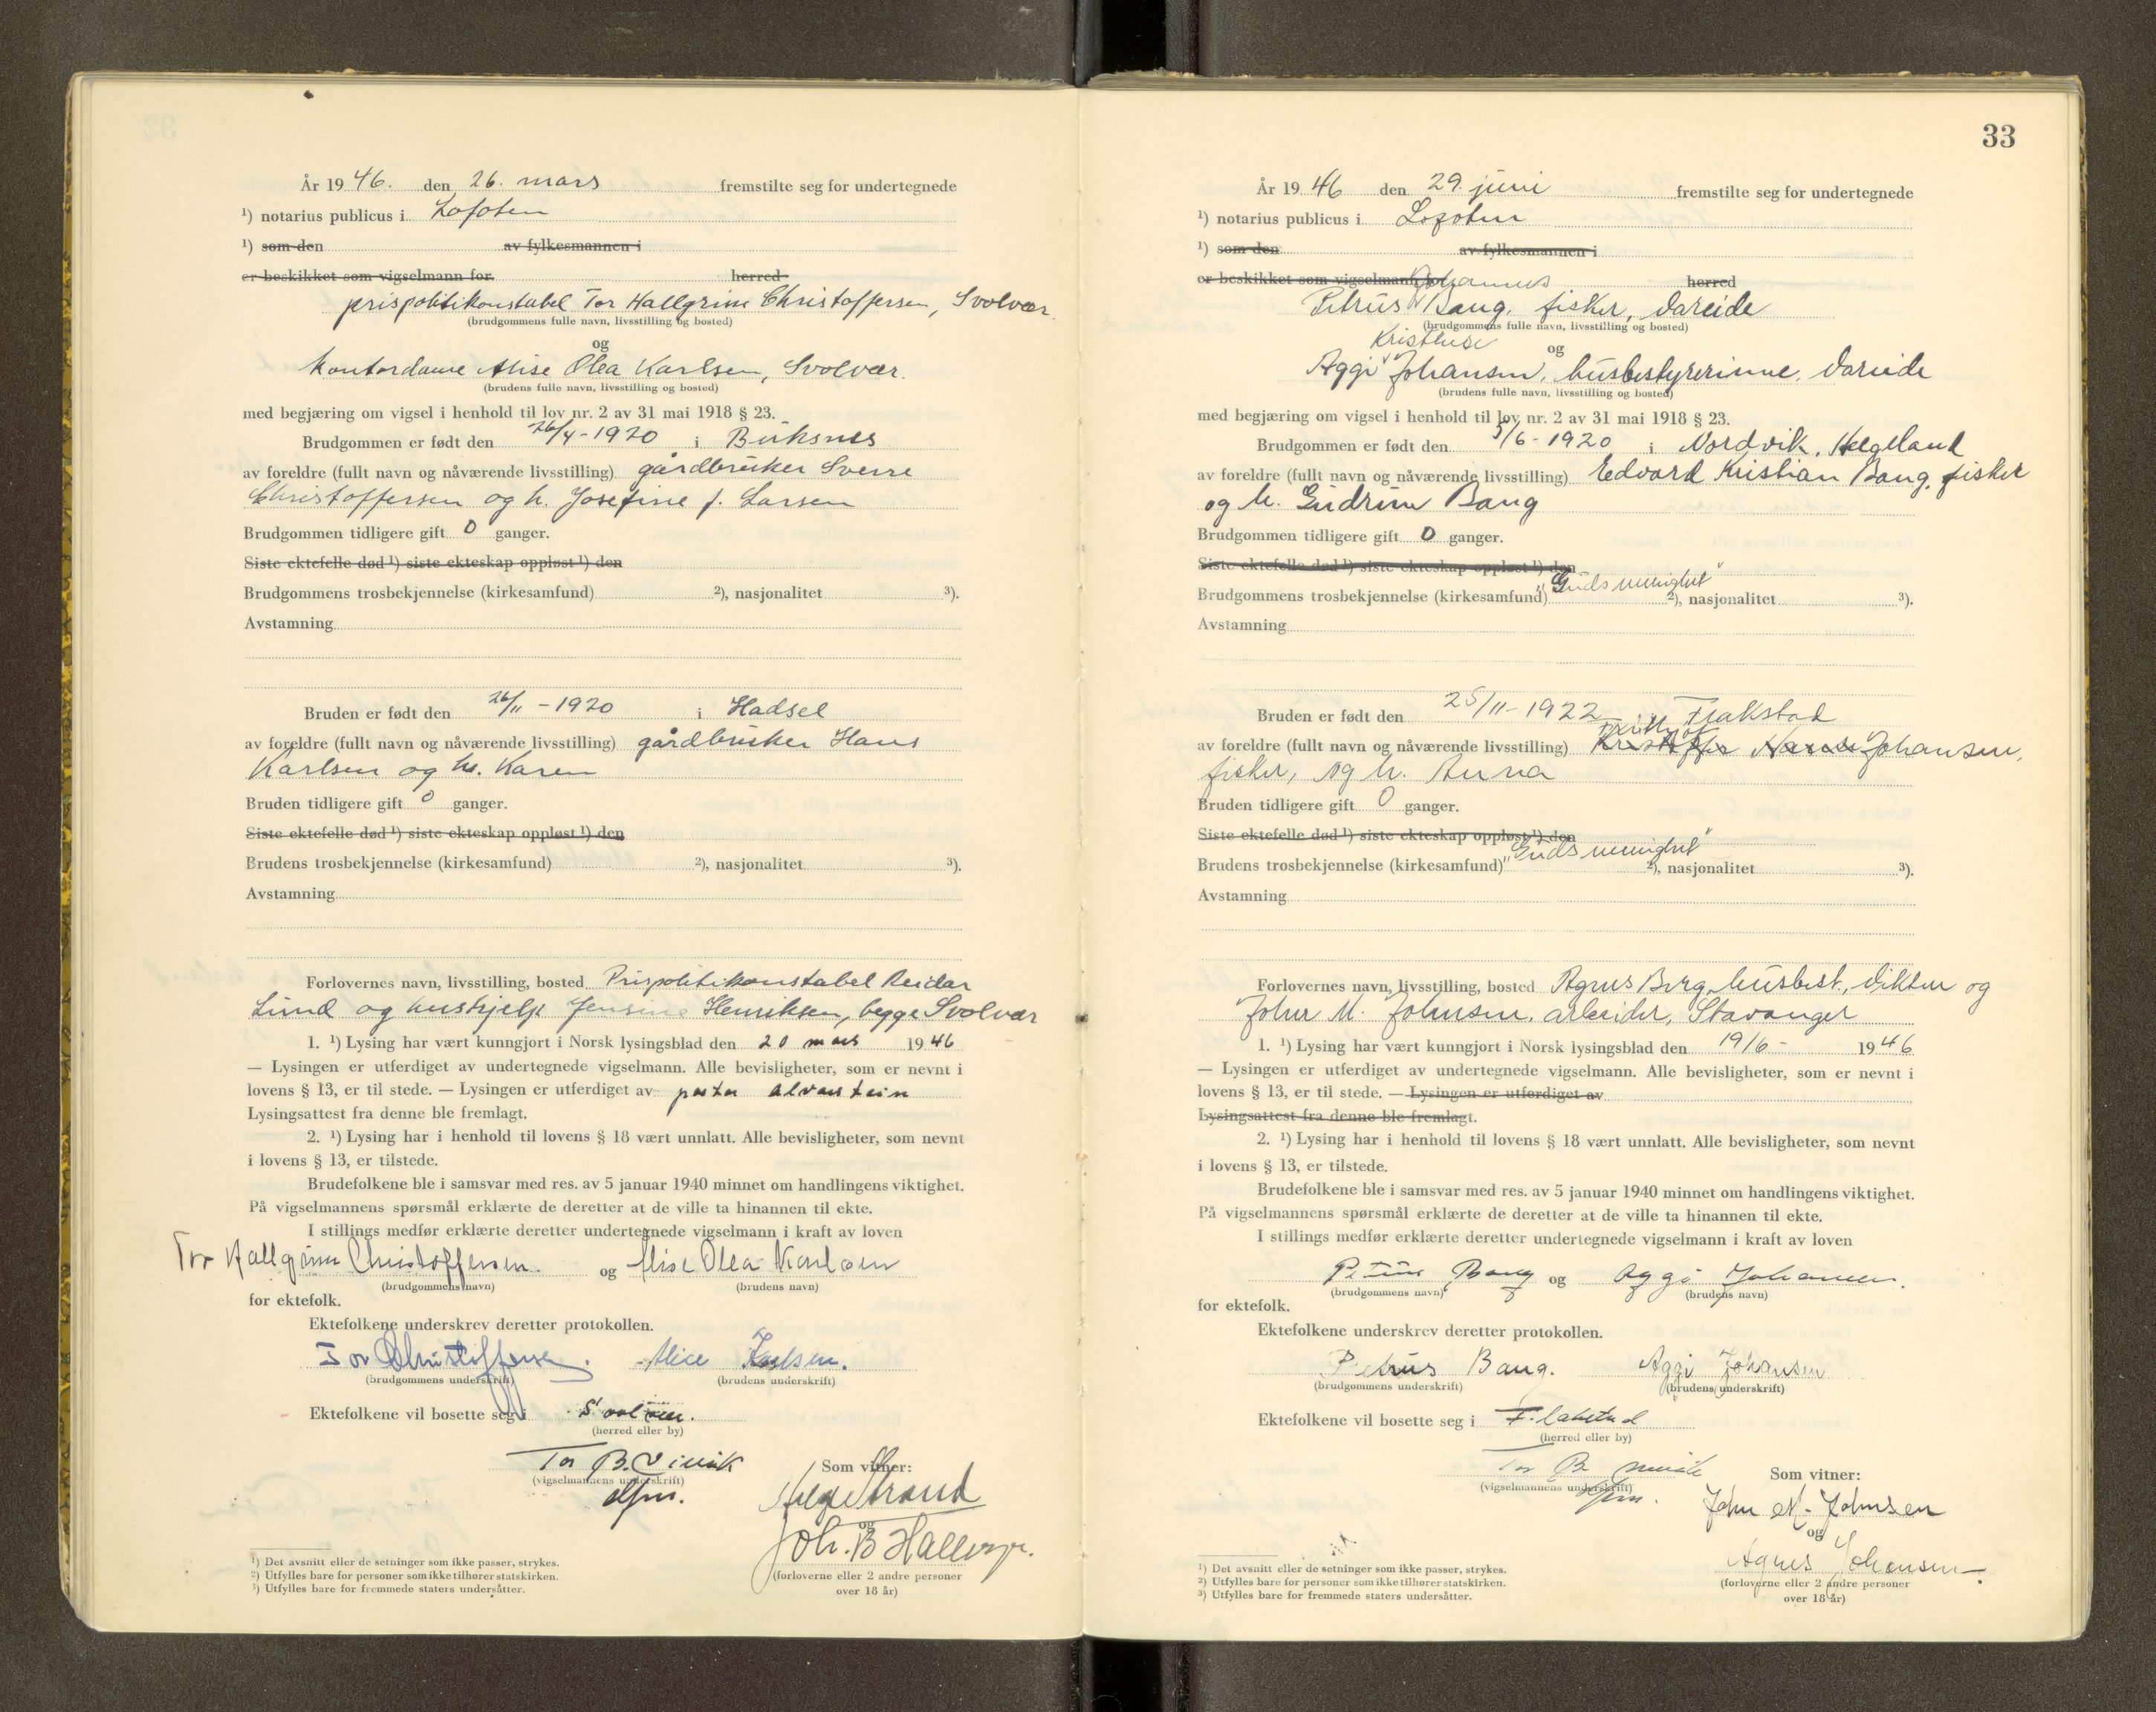 År 1946. den 26. mars fremstilte seg for undertegnede
¹) notarius publicus i Lofoten
¹) som den av fylkesmannen i
er beskikket som vigselmann for herred
prispolitikonstabel Tor Hallgrim Christoffersen, Svolvær.
(brudgommens fulle navn, livsstilling og bosted)
og
Kontordame Alise Olea Karlsen, Svolvær.
(brudens fulle navn, livsstilling og bosted)
med begjæring om vigsel i henhold til lov nr. 2 av 31 mai 1918 § 23.
Brudgommen er født den 26/4-1920 i Buksnes
av foreldre (fullt navn og nåværende livsstilling) gårdbruker Sverre
Christoffersen og h. Josefine f. Larsen
Brudgommen tidligere gift 0 ganger.
Siste ektefelle død ¹) siste ekteskap oppløst ¹) den
Brudgommens trosbekjennelse (kirkesamfund) ²), nasjonalitet ³).
Avstamning
Bruden er født den 26/11-1920 i Hadsel
av foreldre (fullt navn og nåværende livsstilling) gårdbruker Hans
Karlsen og h. Karen
Bruden tidligere gift 0 ganger.
Siste ektefelle død ¹) siste ekteskap oppløst ¹) den
Brudens trosbekjennelse (kirkesamfund) ²), nasjonalitet ³).
Avstamning
Forlovernes navn, livsstilling, bosted Prispolitikonstabel Reidar
Lund og hushjelp Jensine Henriksen, begge Svolvær
1. ¹) Lysing har vært kunngjort i Norsk lysingsblad den 20 mars 1946
— Lysingen er utferdiget av undertegnede vigselmann. Alle bevisligheter, som er nevnt i
lovens § 13, er til stede. — Lysingen er utferdiget av pastor Alvastein
Lysingsattest fra denne ble fremlagt.
2. ¹) Lysing har i henhold til lovens § 18 vært unnlatt. Alle bevisligheter, som nevnt
i lovens § 13, er tilstede.
Brudefolkene ble i samsvar med res. av 5 januar 1940 minnet om handlingens viktighet.
På vigselmannens spørsmål erklærte de deretter at de ville ta hinannen til ekte.
I stillings medfør erklærte deretter undertegnede vigselmann i kraft av loven
Tor Hallgrim Christoffersen. og Alise Olea Karlsen
(brudgommens navn) (brudens navn)
for ektefolk.
Ektefolkene underskrev deretter protokollen.
Tor Christoffersen. Alice Karlsen.
(brudgommens underskrift) (brudens underskrift)
Ektefolkene vil bosette seg i Svolvær.
(herred eller by)
Tor B.
(vigselmannens underskrift)
Som vitner:
Helge Strand
og
Joh. B
(forloverne eller 2 andre personer
over 18 år)
¹) Det avsnitt eller de setninger som ikke passer, strykes.
²) Utfylles bare for personer som ikke tilhører statskirken.
³) Utfylles bare for fremmede staters undersåtter.
33
År 1946 den 29. juni fremstilte seg for undertegnede
¹) notarius publicus i Lofoten
¹) som den av fylkesmannen i
er beskikket som vigselmann for herred
Johannes
Petrus Bang, fisker, Vareide
(brudgommens fulle navn, livsstilling og bosted)
Kristense og
Aggi Johansen, husbestyrerinne, Vareide
(brudens fulle navn, livsstilling og bosted)
med begjæring om vigsel i henhold til lov nr. 2 av 31 mai 1918 § 23.
Brudgommen er født den 3/6-1920 i Nordvik, Helgeland
av foreldre (fullt navn og nåværende livsstilling) Edvard Kristian Bang, fisker
og h. Gudrun Bang
Brudgommen tidligere gift 0 ganger.
Siste ektefelle død ¹) siste ekteskap oppløst ¹) den
Brudgommens trosbekjennelse (kirkesamfund) "Guds menighet" ²), nasjonalitet ³).
Avstamning
Bruden er født den 25/11-1922 i Flakstad
av foreldre (fullt navn og nåværende livsstilling) Johansen,
fisker, og h. Anna
Bruden tidligere gift 0 ganger.
Siste ektefelle død ¹) siste ekteskap oppløst ¹) den
Brudens trosbekjennelse (kirkesamfund) "Guds menighet" ²), nasjonalitet ³).
Avstamning
Forlovernes navn, livsstilling, bosted Agnes Berg, husbest., Vikten og
John M. Johnsen, arbeider, Stavanger
1. ¹) Lysing har vært kunngjort i Norsk lysingsblad den 19/6- 1946
— Lysingen er utferdiget av undertegnede vigselmann. Alle bevisligheter, som er nevnt i
lovens § 13, er til stede. — Lysingen er utferdiget av
Lysingsattest fra denne ble fremlagt.
2. ¹) Lysing har i henhold til lovens § 18 vært unnlatt. Alle bevisligheter, som nevnt
i lovens § 13, er tilstede.
Brudefolkene ble i samsvar med res. av 5 januar 1940 minnet om handlingens viktighet.
På vigselmannens spørsmål erklærte de deretter at de ville ta hinannen til ekte.
I stillings medfør erklærte deretter undertegnede vigselmann i kraft av loven
Petrus Bang og Aggi Johansen.
(brudgommens navn) (brudens navn)
for ektefolk.
Ektefolkene underskrev deretter protokollen.
Petrus Bang. Aggi Johansen
(brudgommens underskrift) (brudens underskrift)
Ektefolkene vil bosette seg i Flakstad
(herred eller by)
Tor B
(vigselmannens underskrift)
Som vitner:
John M. Johnsen
og
Agnes Johansen.
(forloverne eller 2 andre personer
over 18 år)
¹) Det avsnitt eller de setninger som ikke passer, strykes.
²) Utfylles bare for personer som ikke tilhører statskirken.
³) Utfylles bare for fremmede staters undersåtter.